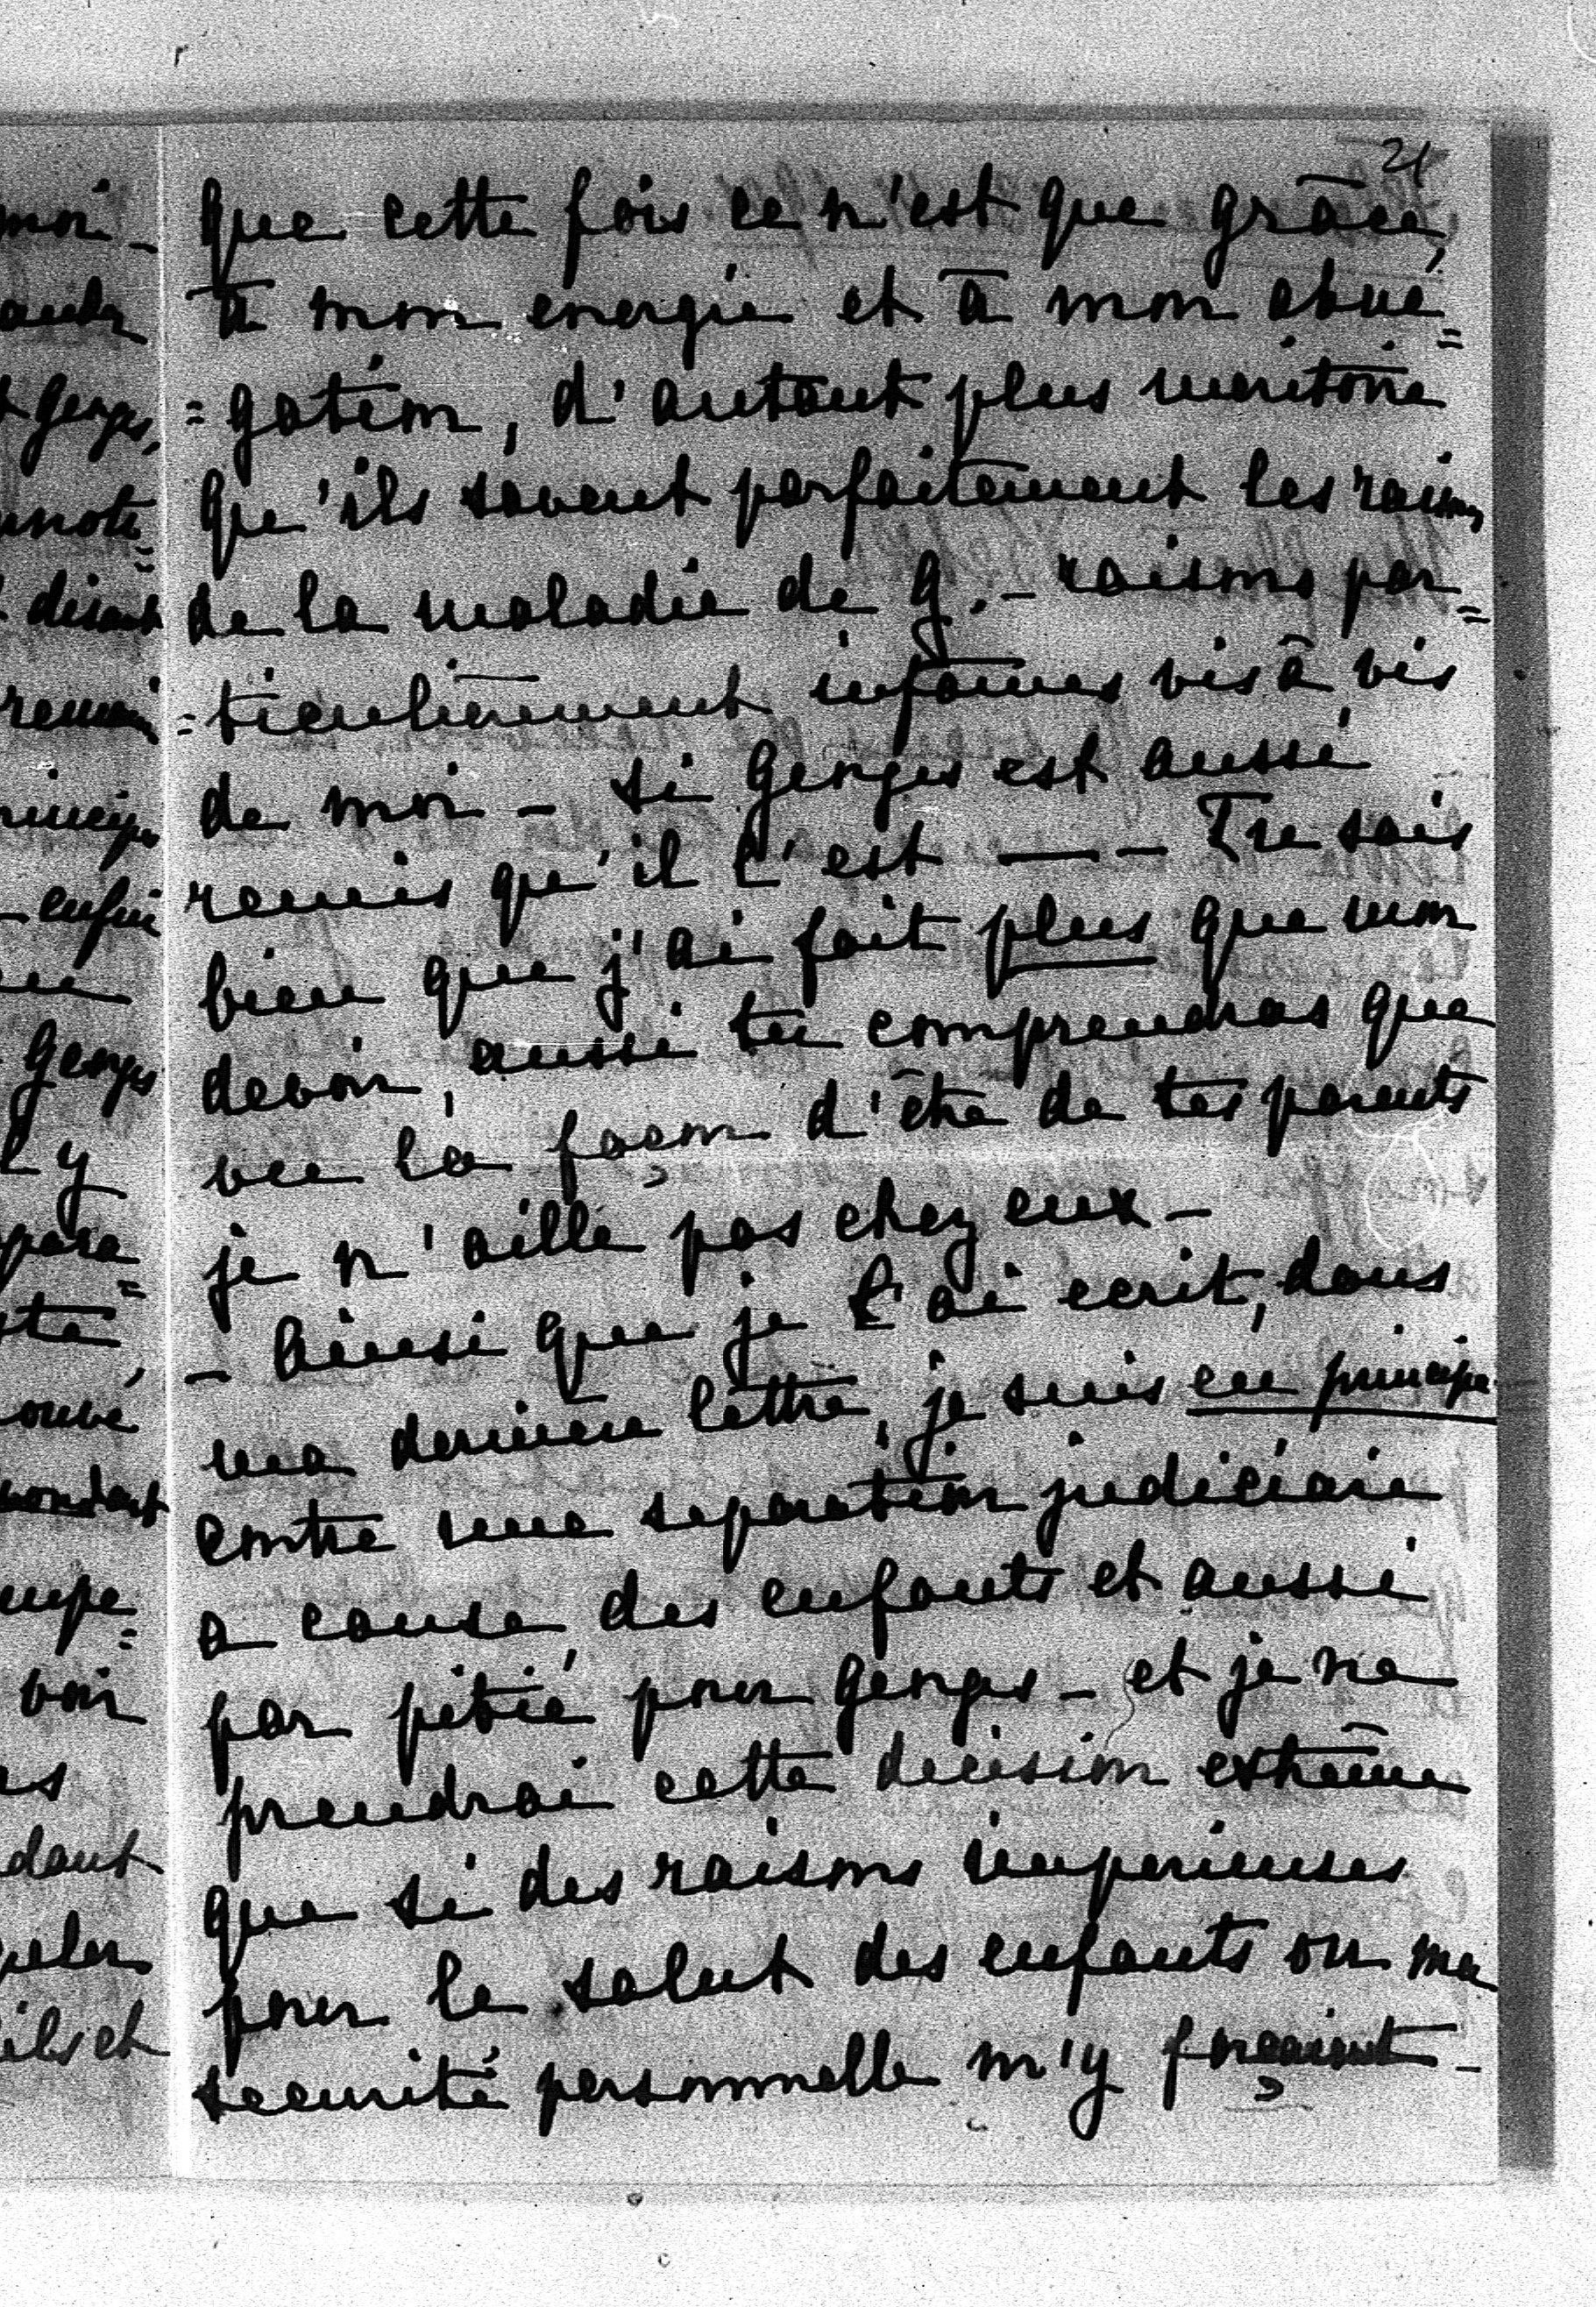 21
que cette fois ce n'est que grâce,
à mon energie et à mon abne=
=gation, d'autant plus meritoire
qu'ils savent parfaitement les raisons
de la maladie de G. - raisons par=
=ticulièrement infâmes vis à vis
de moi - si Georges est aussi
remis qu'il l'est — - Tu sais
bien que j'ai fait plus que mon
devoir, aussi tu comprendras que
vu la façon d'être de tes parents
je n'aille pas chez eux -
- Ainsi que je t'ai ecrit, dans
ma derniere lettre, je suis en principe
contre une separation judiciaire
a cause des enfants et aussi
par pitié pour Georges - et je ne
prendrai cette decision extrême
que si des raisons imperieuses
pour le salut des enfants ou ma
securité personnelle m'y forçaient -
moi -
Georges,
disant
enfin
Georges
y
voir
ils et